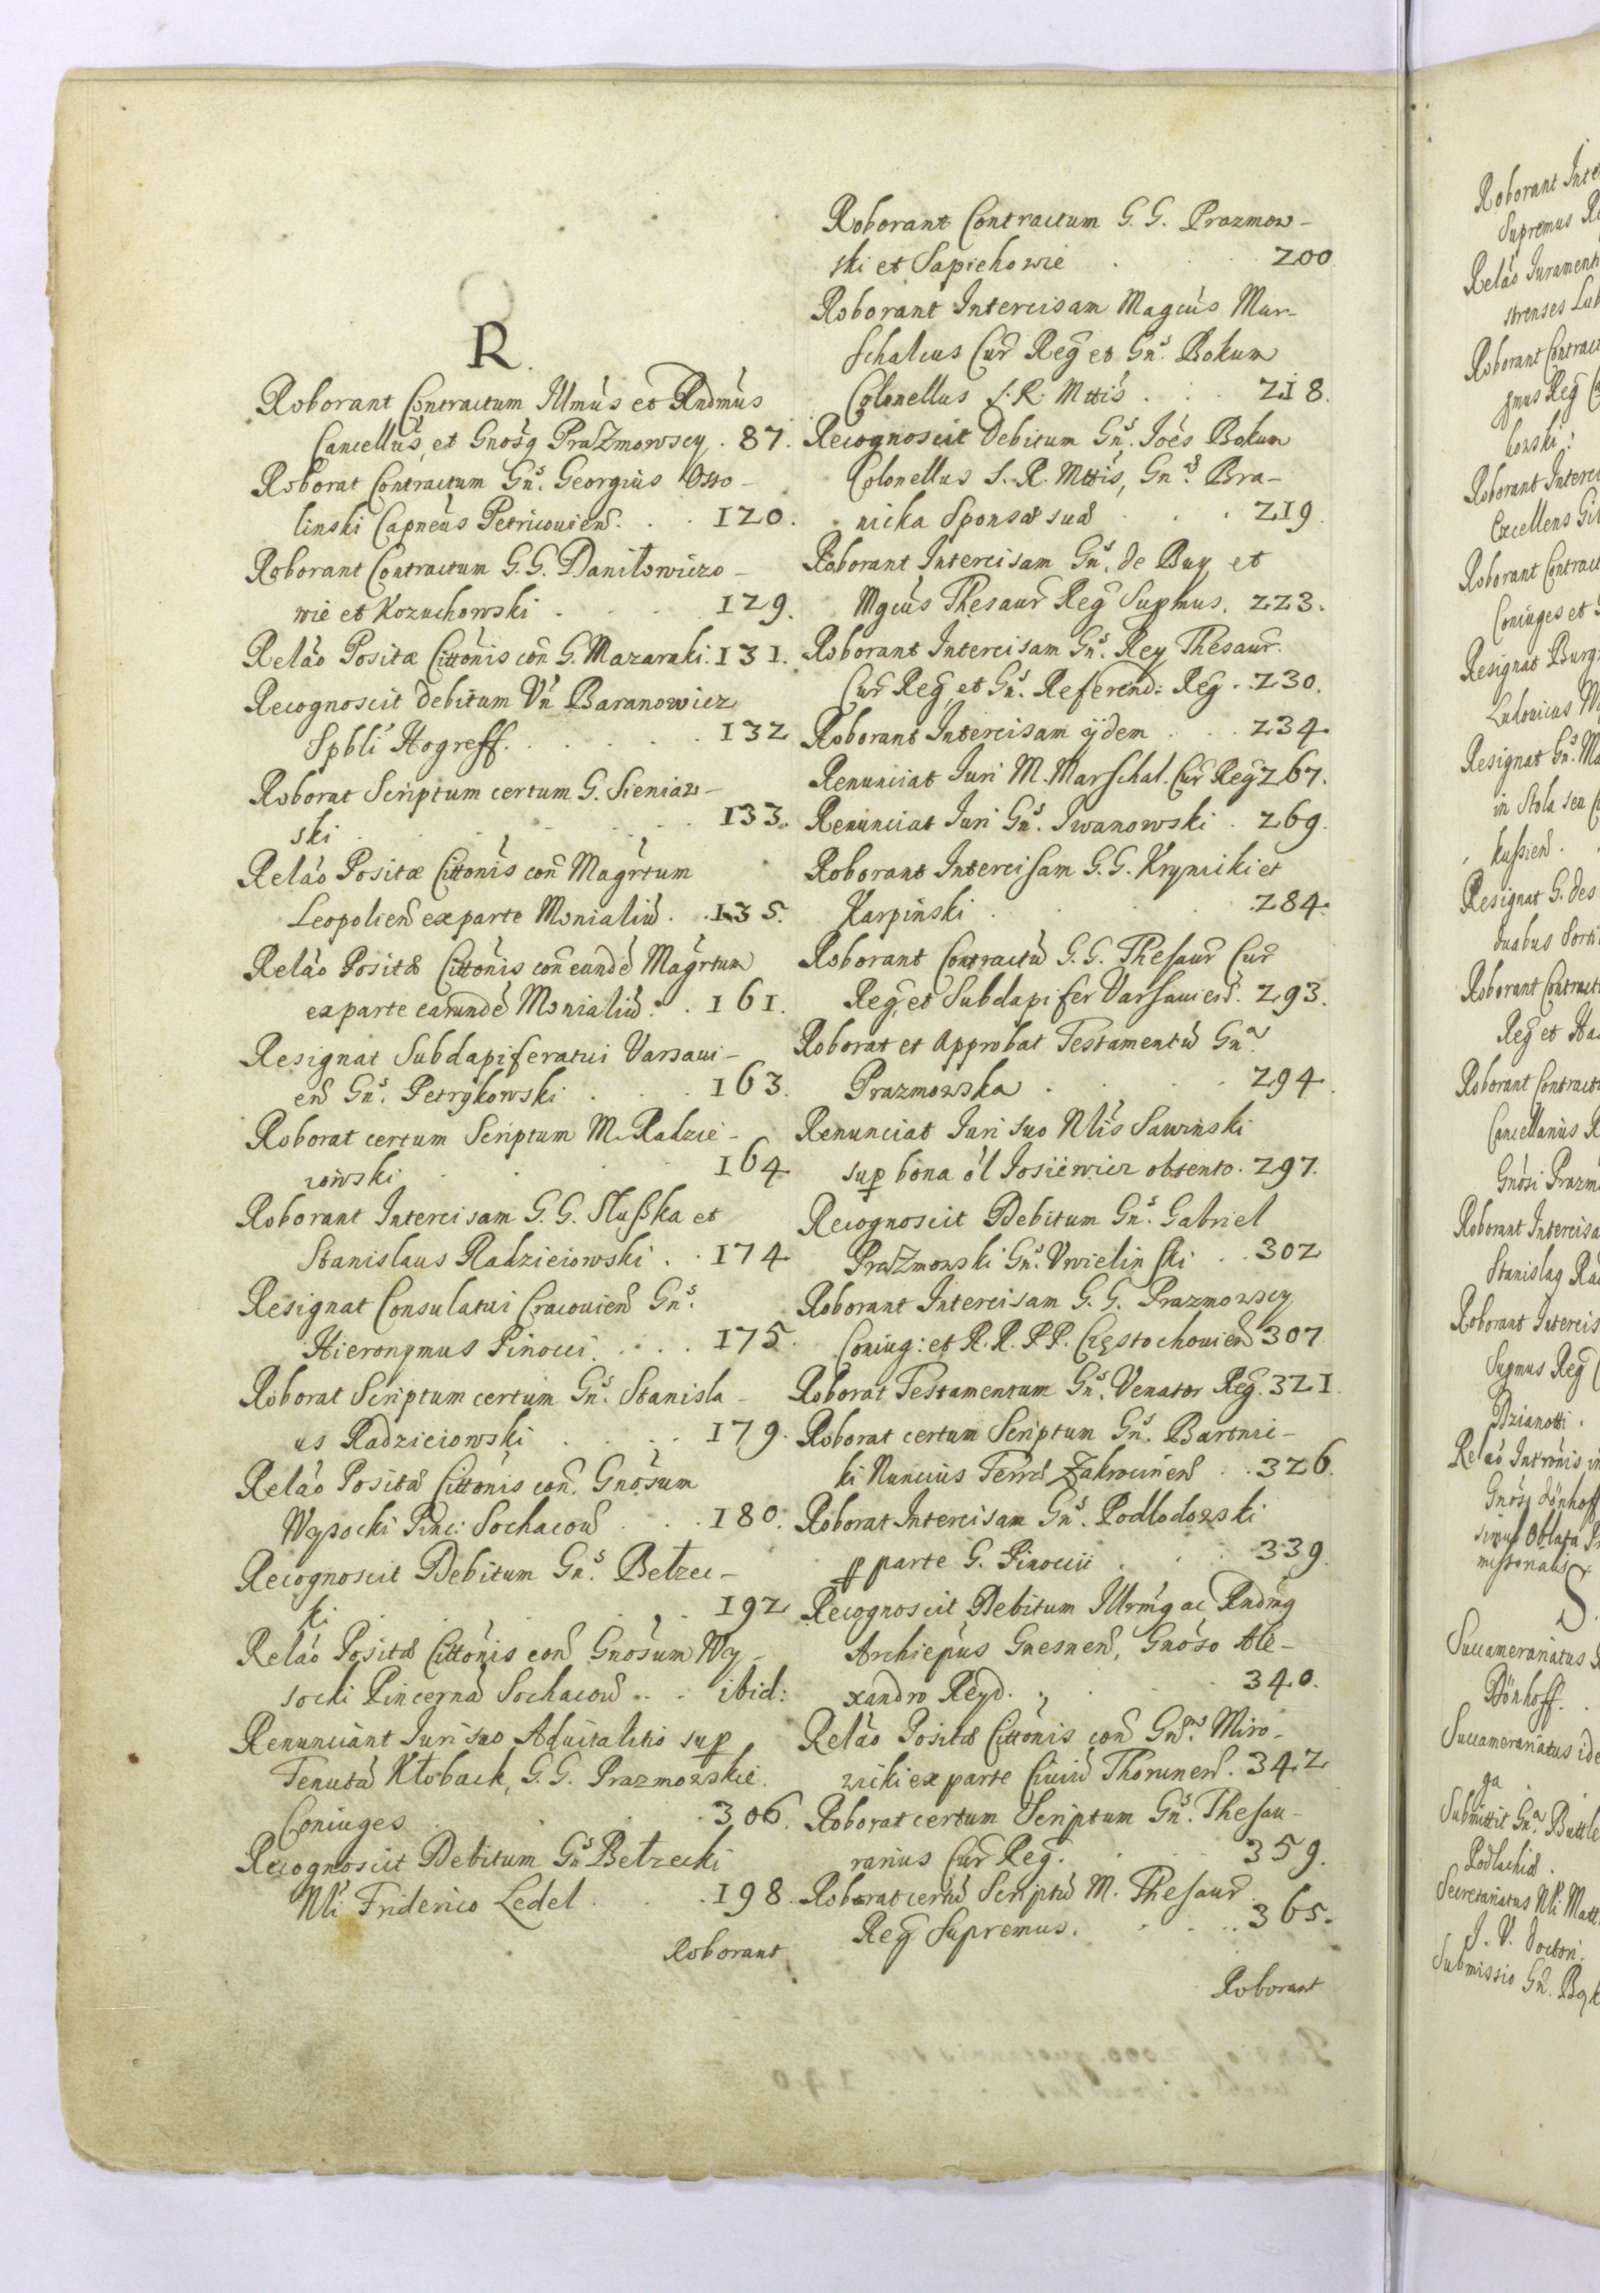 R.
Roborant Contractum Illmús et Rndmús
Cancellús, et Gnosq Prażmowscy . 87.
Roborat Contractum Gns. Georgius Osso-
linski Capneus Petricouien. . . 120.
Roborant Contractum G.G. Daniłowiczo-
wie et Kozuchowski . . . 129.
Relao Positæ Cittonis con G. Mazaraki. 131.
Recognoscit debitum Vn Baranowicz
Spbli Hogreff. . . . . . 132
Roborat Scriptum certum G. Sieniaw-
ski . . . . . . 133.
Relao Positæ Cittonis con Magrtum
Leopolien ex parte Monialiu . . 135.
Relao Posita Cittonis con eunde Magrtum
ex parte earunde Monialiu . . 161.
Resignat Subdapiferatui Varsaui-
en Gns. Petrykowski . . . 163.
Roborat certum Scriptum M. Radzie-
iowski . . . . . 164
Roborant Intercisam G.G. Słuszka et
Stanislaus Radzieiowski . . 174
Resignat Consulatui Cracouien Gns.
Hieronymus Pinocci . . . . 175.
Roborat Scriptum certum Gns. Stanisla-
us Radzieiowski . . . . 179.
Relao Posita Cittonis con Gnosum
Wysocki Pinc: Sochacou . . . 180.
Recognoscit Debitum Gns. Bełzec-
ki . . . . . . 192
Relao Posita Cittonis con Gnosum Wy-
socki Pincerna Sochacou . . . ibid:
Renunciant Juri suo Aduitalitio sup
Tenuta Kłoback, G.G. Prazmowskie
Coniuges . . . . . 306.
Recognoscit Debitum Gns Bełzecki
Nli Friderico Ledel . . . . 198
Roborant
Roborant Contractum G. G. Prazmow-
ski et Sapiehowie . . . 200
Roborant Intercisam Magcus Mar-
schalcus Cur Reg et Gns. Bokum
Colonellus S. R. Mttis . . . 218.
Recognoscit Debitum Gns. Joes Bokum
Colonellus S. R. Mttis, Gna. Bra-
nicka Sponsa sua . . . 219
Roborant Intercisam Gns. de Buy et
Mgcus Thesaur Reg Supmus. 223.
Roborant Intercisam Gns. Rey Thesaur.
Cur Reg, et Gns. Referend: Reg . 230.
Roborant Intercisam ijdem . . . 234.
Renunciat Juri M. Marschal. Cur Reg 267.
Renunciat Juri Gns. Iwanowski . 269.
Roborant Intercisam G.G. Krynicki et
Karpinski . . . . . 284.
Roborant Contractu G.G. Thesaur Cur
Reg, et Subdapifer Varsauien. 293.
Roborat et Approbat Testamentu Gna
Prazmowska . . . . . 294.
Renunciat Juri suo Nlis Sawinski
sup bona ol Josiewicz obtento. 297.
Recognoscit Debitum Gns. Gabriel
Prażmowski Gns. Vwielinski . . 302
Roborant Intercisam G.G. Prazmowscy
Coniug: et R.R. P.P. Częstochouien 307
Roborat Testamentum Gns. Venator Reg. 321.
Roborat certum Scriptum Gns. Bartnic-
ki Nuncius Terra Zakrocimen . . 326.
Roborat Intercisam Gns. Podlodowski
p parte G. Pinoccii . . . 339.
Recognoscit Debitum Illrmq ac Rndmq
Archiepus Gnesnen, Gnoso Ale-
xandro Reyd. . . . . 340.
Relao Posita Cittonis con Gnm. Miro-
wicki ex parte Ciuiu Thorunen . 342
Roborat certum Scriptum Gns. Thesau-
rarius Cur Reg. . . . . 359.
Roborat certu Scriptu M. Thesaur.
Reg Supremus. . . . . 365.
Roborant
Roborant Inte
Supremus Re
Relao Jurament
strenses Lub
Roborant Contract
Roborant Interci
Excellens Gi
Roborant Contract
Coniuges et
Resignat Burg
Ludouicus
Resignat Gns. Ma
in Stola seu
Resignat G. des
duabus Sorti
Roborant Contract
Reg et
Roborant Contract
Cancellarius R
Gnosi Prazm
Roborant Intercisa
Stanislaq Ra
Roborant Intercis
Supmus Reg
Dzianotti .
Relao Intronis in
Gnosi Dönhoff
simul Oblata
S.
Succameraniatus
Dönhoff.
Succameraniatus ide
ga
Submittit Gna. Buttle
Podlachia .
Secretariatus Nli Matt
J. V. Doctori.
Submissio Gn.